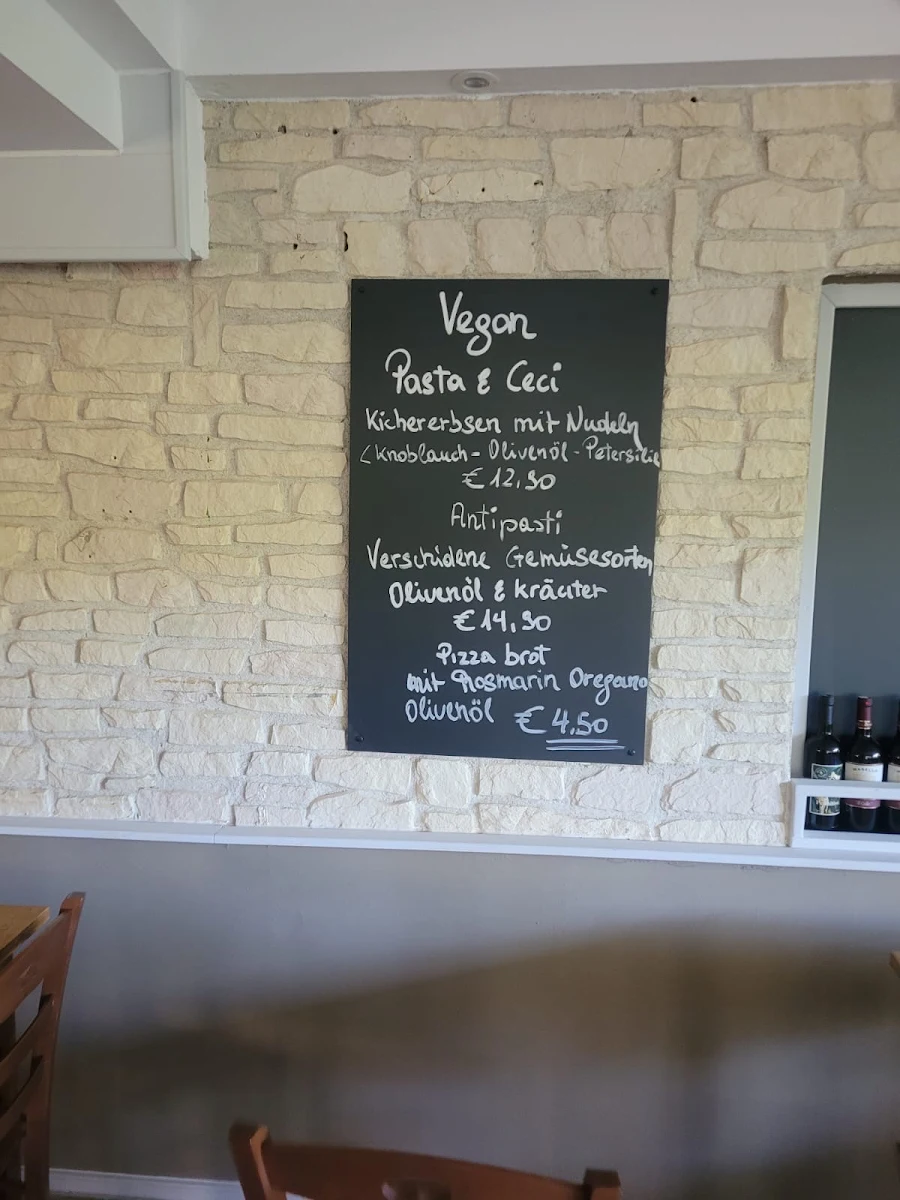 Vegan
Pasta & Ceci
Kichererbsen mit Nudeln
(Knoblauch - Olivenöl - Petersilie
€ 12,90
Antipasti
Verschidene Gemüsesorten
Olivenöl & kräuter
€ 14,90
Pizza brot
mit Rosmarin Oregano
Olivenöl € 4,50